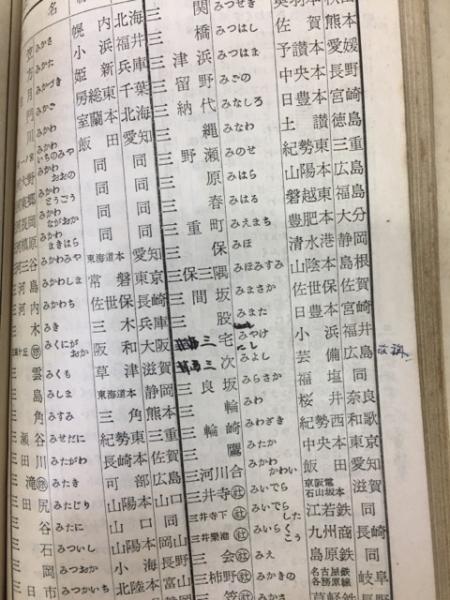 名
みかさ 幌内 北海
みかた 小浜 福井
みかづき 姫新 兵庫
房総東 千葉
室蘭本 北海
みかわいちのみや 飯田 愛知
大野 みかわおおの 同 同
東郷 みかわとうごう 同 同
みかわながおか 同 同
槙原 みかわまきはら 同 同
三谷 みかわみや 東海道本 愛知
三河島 みかわしま 常磐 東京
三河内 みかわち 佐世保 長崎
三木 みき 三木 兵庫
みくにがおか 阪和 大阪
三雲 みくも 草津 滋賀
三島 みしま 東海道本 静岡
三角 みすみ 三角 熊本
三瀬谷 みせだに 紀勢東 三重
三田川 みたがわ 長崎本 佐賀
三滝 みたき 可部 広島
三田尻 みたじり 山陽本 山口
三谷 みたに 山口 同
三石 みついし 山陽本 岡山
三岡 みつおか 小海 長野
三日市 みつかいち 北陸本 富山
三関 みつせき 奥羽本 秋田
三橋 みつはし 佐賀
三津浜 みつはま 予讃本 愛媛
三留野 みどの 中央本 長野
三納代 みなしろ 日豊本 宮崎
三縄 みなわ 土讃 徳島
三野瀬 みのせ 紀勢東 三重
三原 みはら 山陽本 広島
三春 みはる 磐越東 福島
三重町 みえまち 豊肥本 大分
三保 みほ 清水港 静岡
三保三隅 みほみすみ 山陰本 島根
三間坂 みまさか 佐世保 佐賀
三股 みまた 日豊本 宮崎
三宅 みやけ 小浜 福井
三次 みよし 芸備 広島
三良坂 みらさか 福塩 同
三輪 みわ 桜井 奈良
三輪崎 みわざき 紀勢西 和歌
三鷹 みたか 中央本 東京
三河川合 みかわかわい 飯田 愛知
三井寺 みいでら 京阪電石山坂本 滋賀
三井寺下 みいでらした 江若鉄 同
三井楽港 みいらくこう 九州商 長崎
三会 みえ 島原鉄 同
三柿野 みかきの 名古屋鉄各務原線 岐阜
三笠